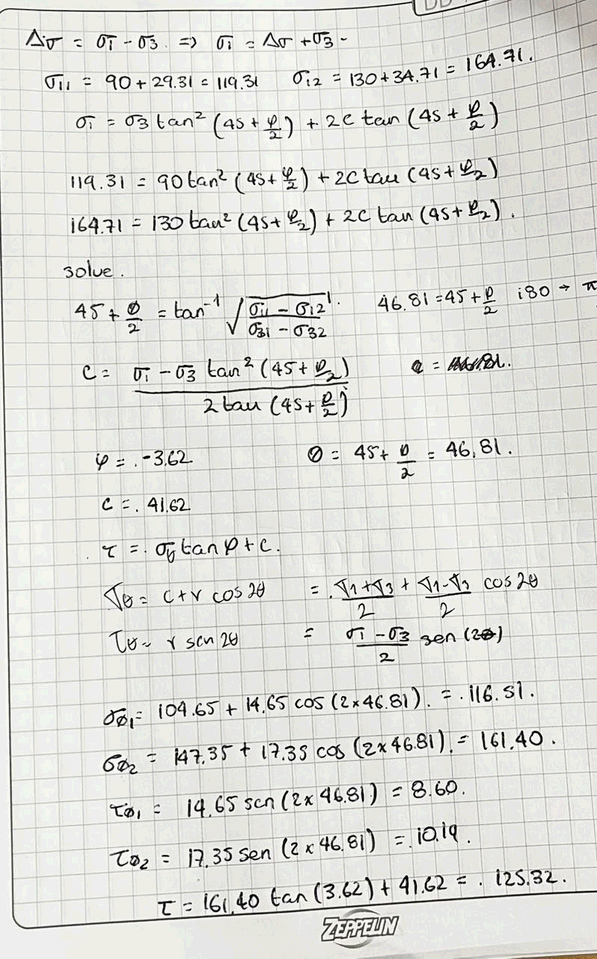 Δσ = σ1 - σ3 ⇒ σ1 = Δσ + σ3 -
σ11 = 90 + 29.31 = 119.31 σ12 = 130 + 34.71 = 164.71.
σ1 = σ3 tan² (45 + φ/2) + 2C tan (45 + φ/2)
119.31 = 90 tan² (45 + φ/2) + 2C tan (45 + φ/2)
164.71 = 130 tan² (45 + φ/2) + 2C tan (45 + φ/2).
solve.
45 + φ/2 = tan⁻¹ √((σ11 - σ12)/(σ31 - σ32)) 46.81 = 45 + φ/2 180 → π
C = (σ1 - σ3 tan² (45 + φ/2))/(2 tan (45 + φ/2))
φ = . -3.62 θ = 45 + φ/2 = 46.81.
C = . 41.62
τ = . σy tan φ + c.
σθ = C + r cos 2θ = . (σ1 + σ3)/2 + (σ1 - σ3)/2 cos 2θ
τθ = r sen 2θ = (σ1 - σ3)/2 sen (2θ)
σθ1 = 104.65 + 14.65 cos (2 x 46.81). = . 116.51.
σθ2 = 147.35 + 17.35 cos (2 x 46.81). = 161.40.
τθ1 = 14.65 sen (2 x 46.81) = 8.60.
τθ2 = 17.35 sen (2 x 46.81) = . 10.19.
τ = 161.40 tan (3.62) + 41.62 = . 125.32.
ZEPPELIN